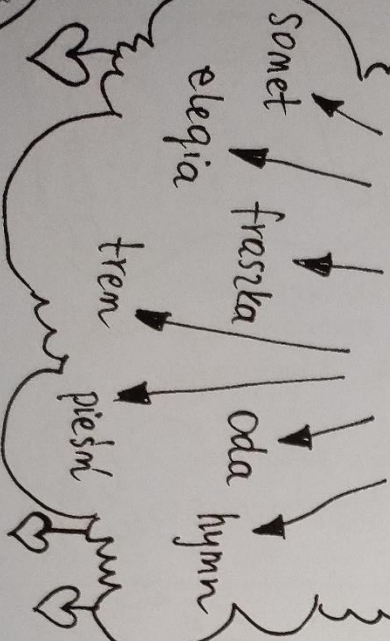 sonet
elegia
fraszka
tren
pieśń
oda
hymn